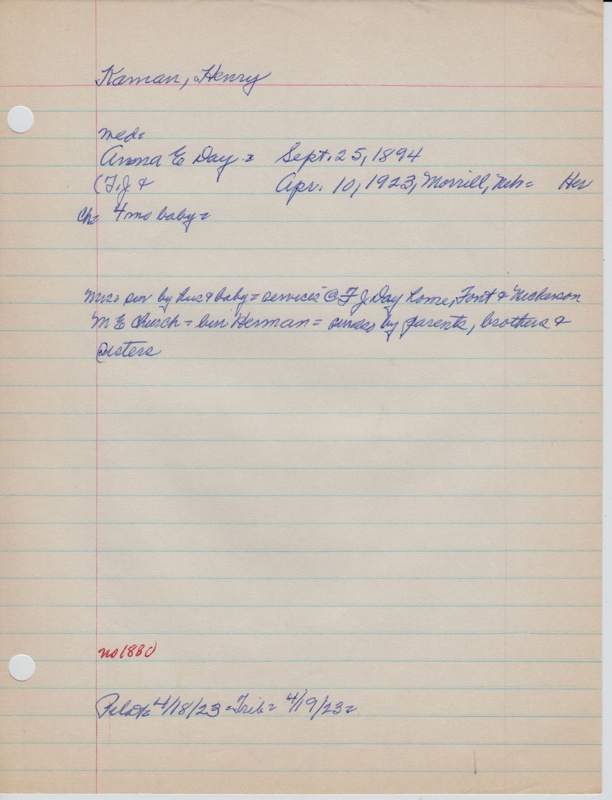 Kaman, Henry
med=
Anna E Day = Sept. 25, 1894
(F. J & Apr. 10, 1923, Morrill, Neb= Her
Ch= 4 mo baby=
Mrs= sur by hus & baby = services @ F J Day home, Font & Nickerson
M E Church = bur Herman = survd by parents, brothers &
sisters
no 1880
Pilot= 4/18/23 = Trib= 4/19/23=